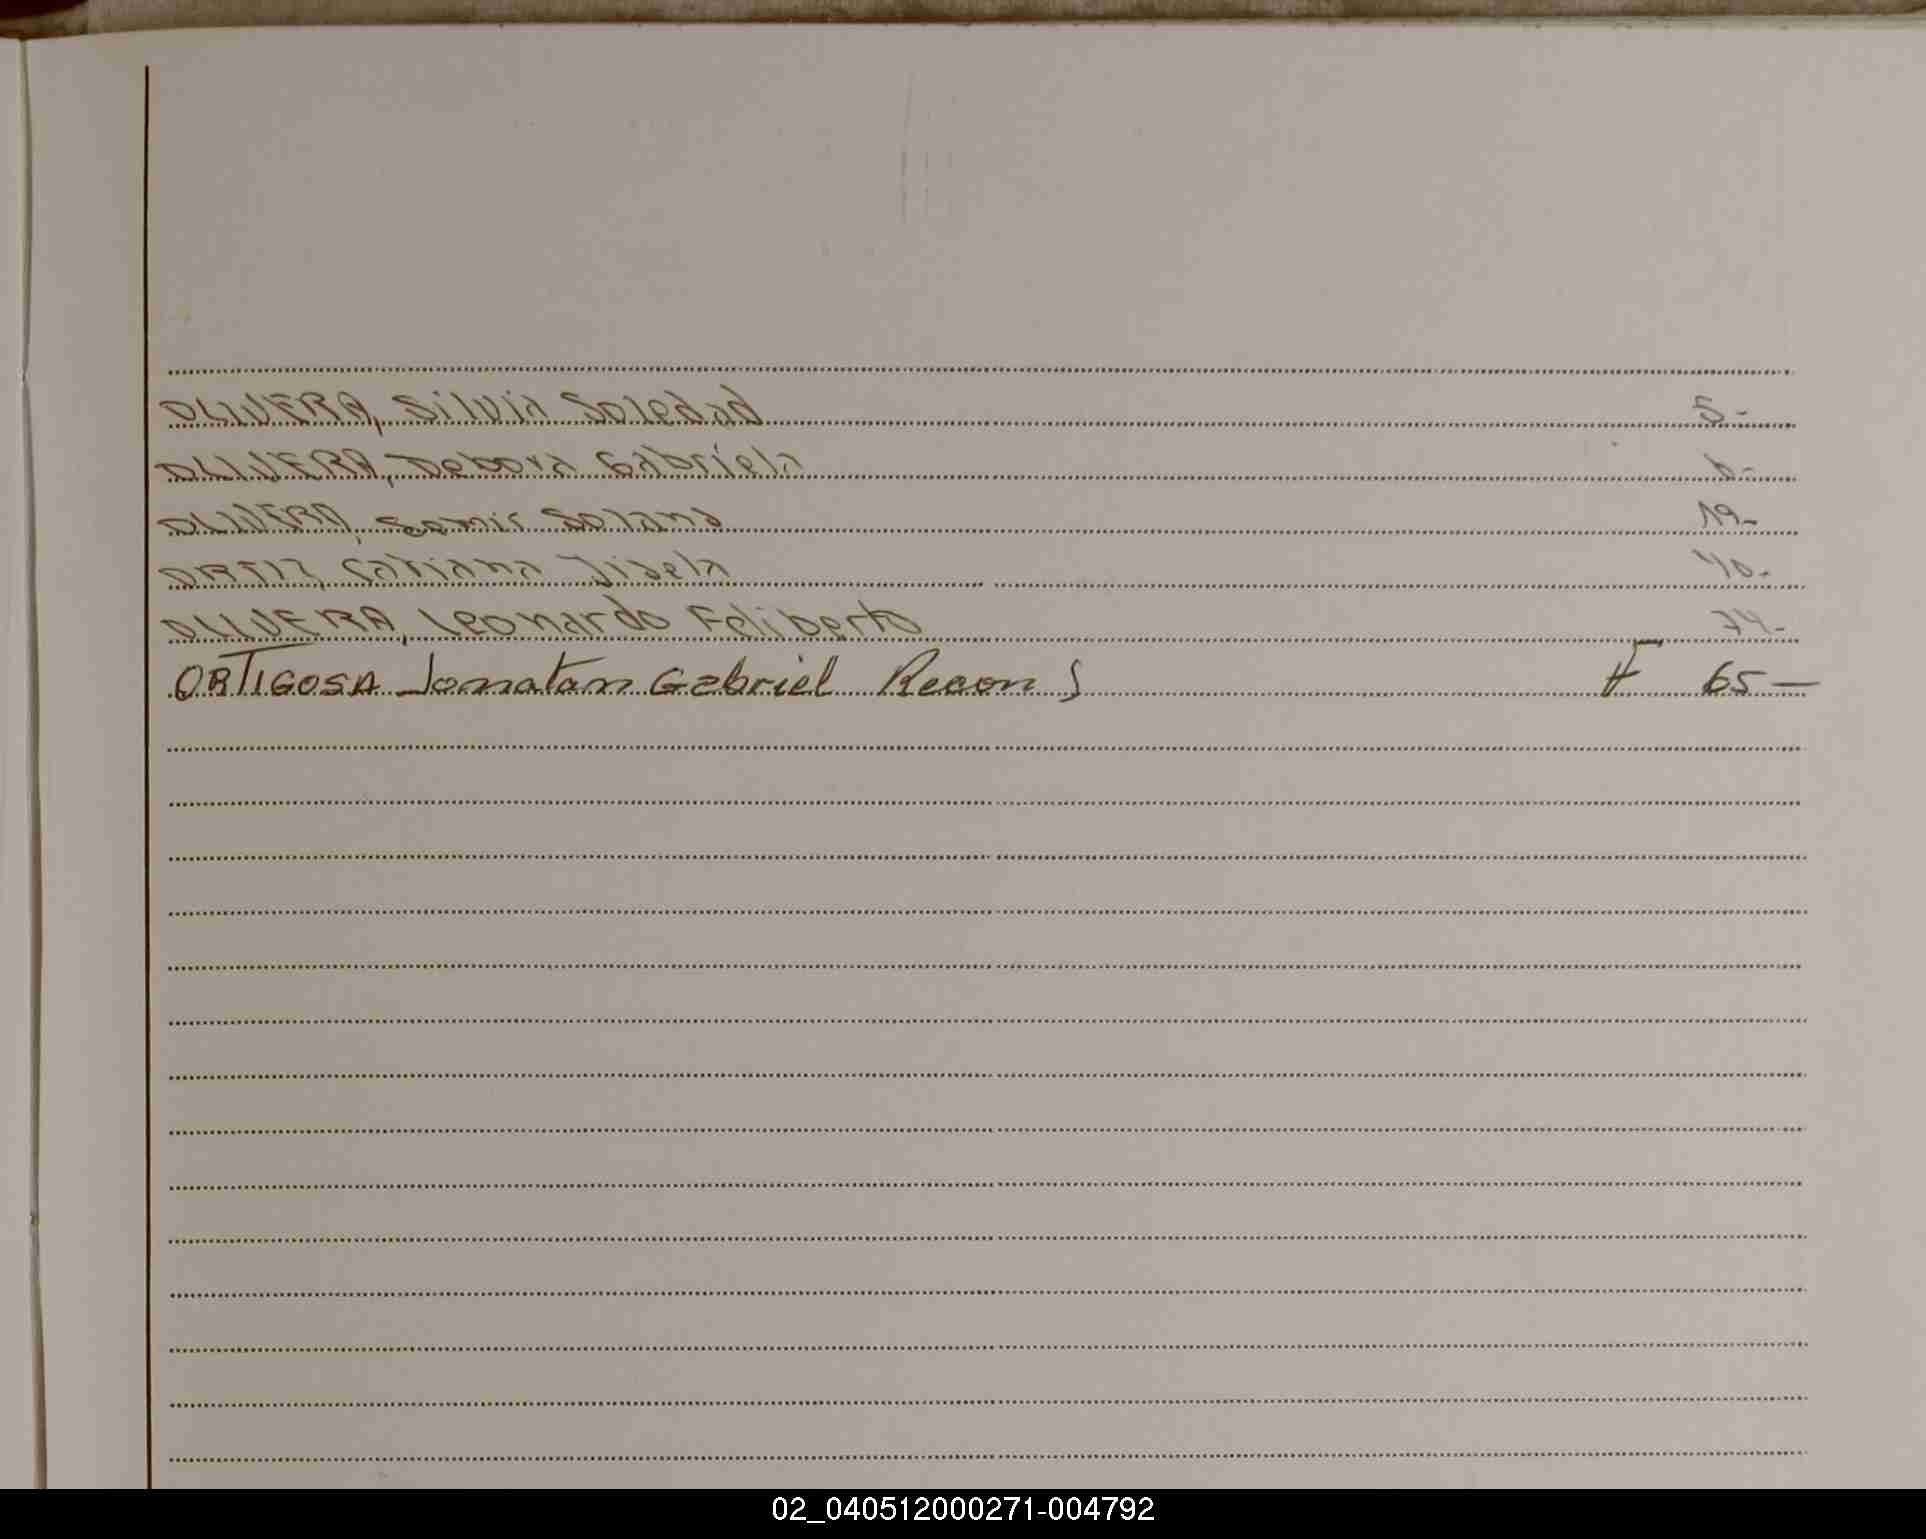 OLIVERA, Silvia Soledad 5-
OLIVERA, Debora Gabriela 6-
OLIVERA, Samir Solano 19-
ORTIZ, Catriana Jisela 40-
OLIVERA, Leonardo Feliberto 74-
ORTIGOSA Jonatan Gabriel Recon F 65-
02_040512000271-004792